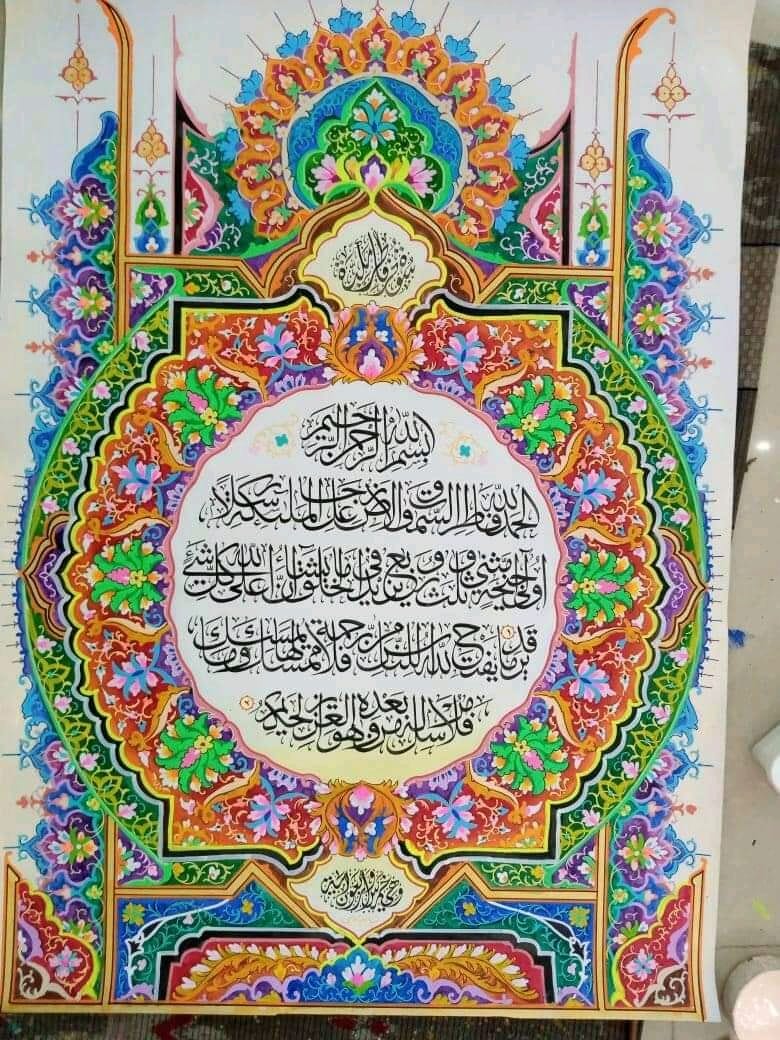 سورة فاطر
بسم الله الرحمن الرحيم
الحمد لله فاطر السموت والارض جاعل الملئكة رسلا
اولى اجنحة مثنى وثلث وربع يزيد فى الخلق ما يشاء ان الله على كل شئ
قدير ١ ما يفتح الله للناس من رحمة فلا ممسك لها وما يمسك
فلا مرسل له من بعده وهو العزيز الحكيم ٢